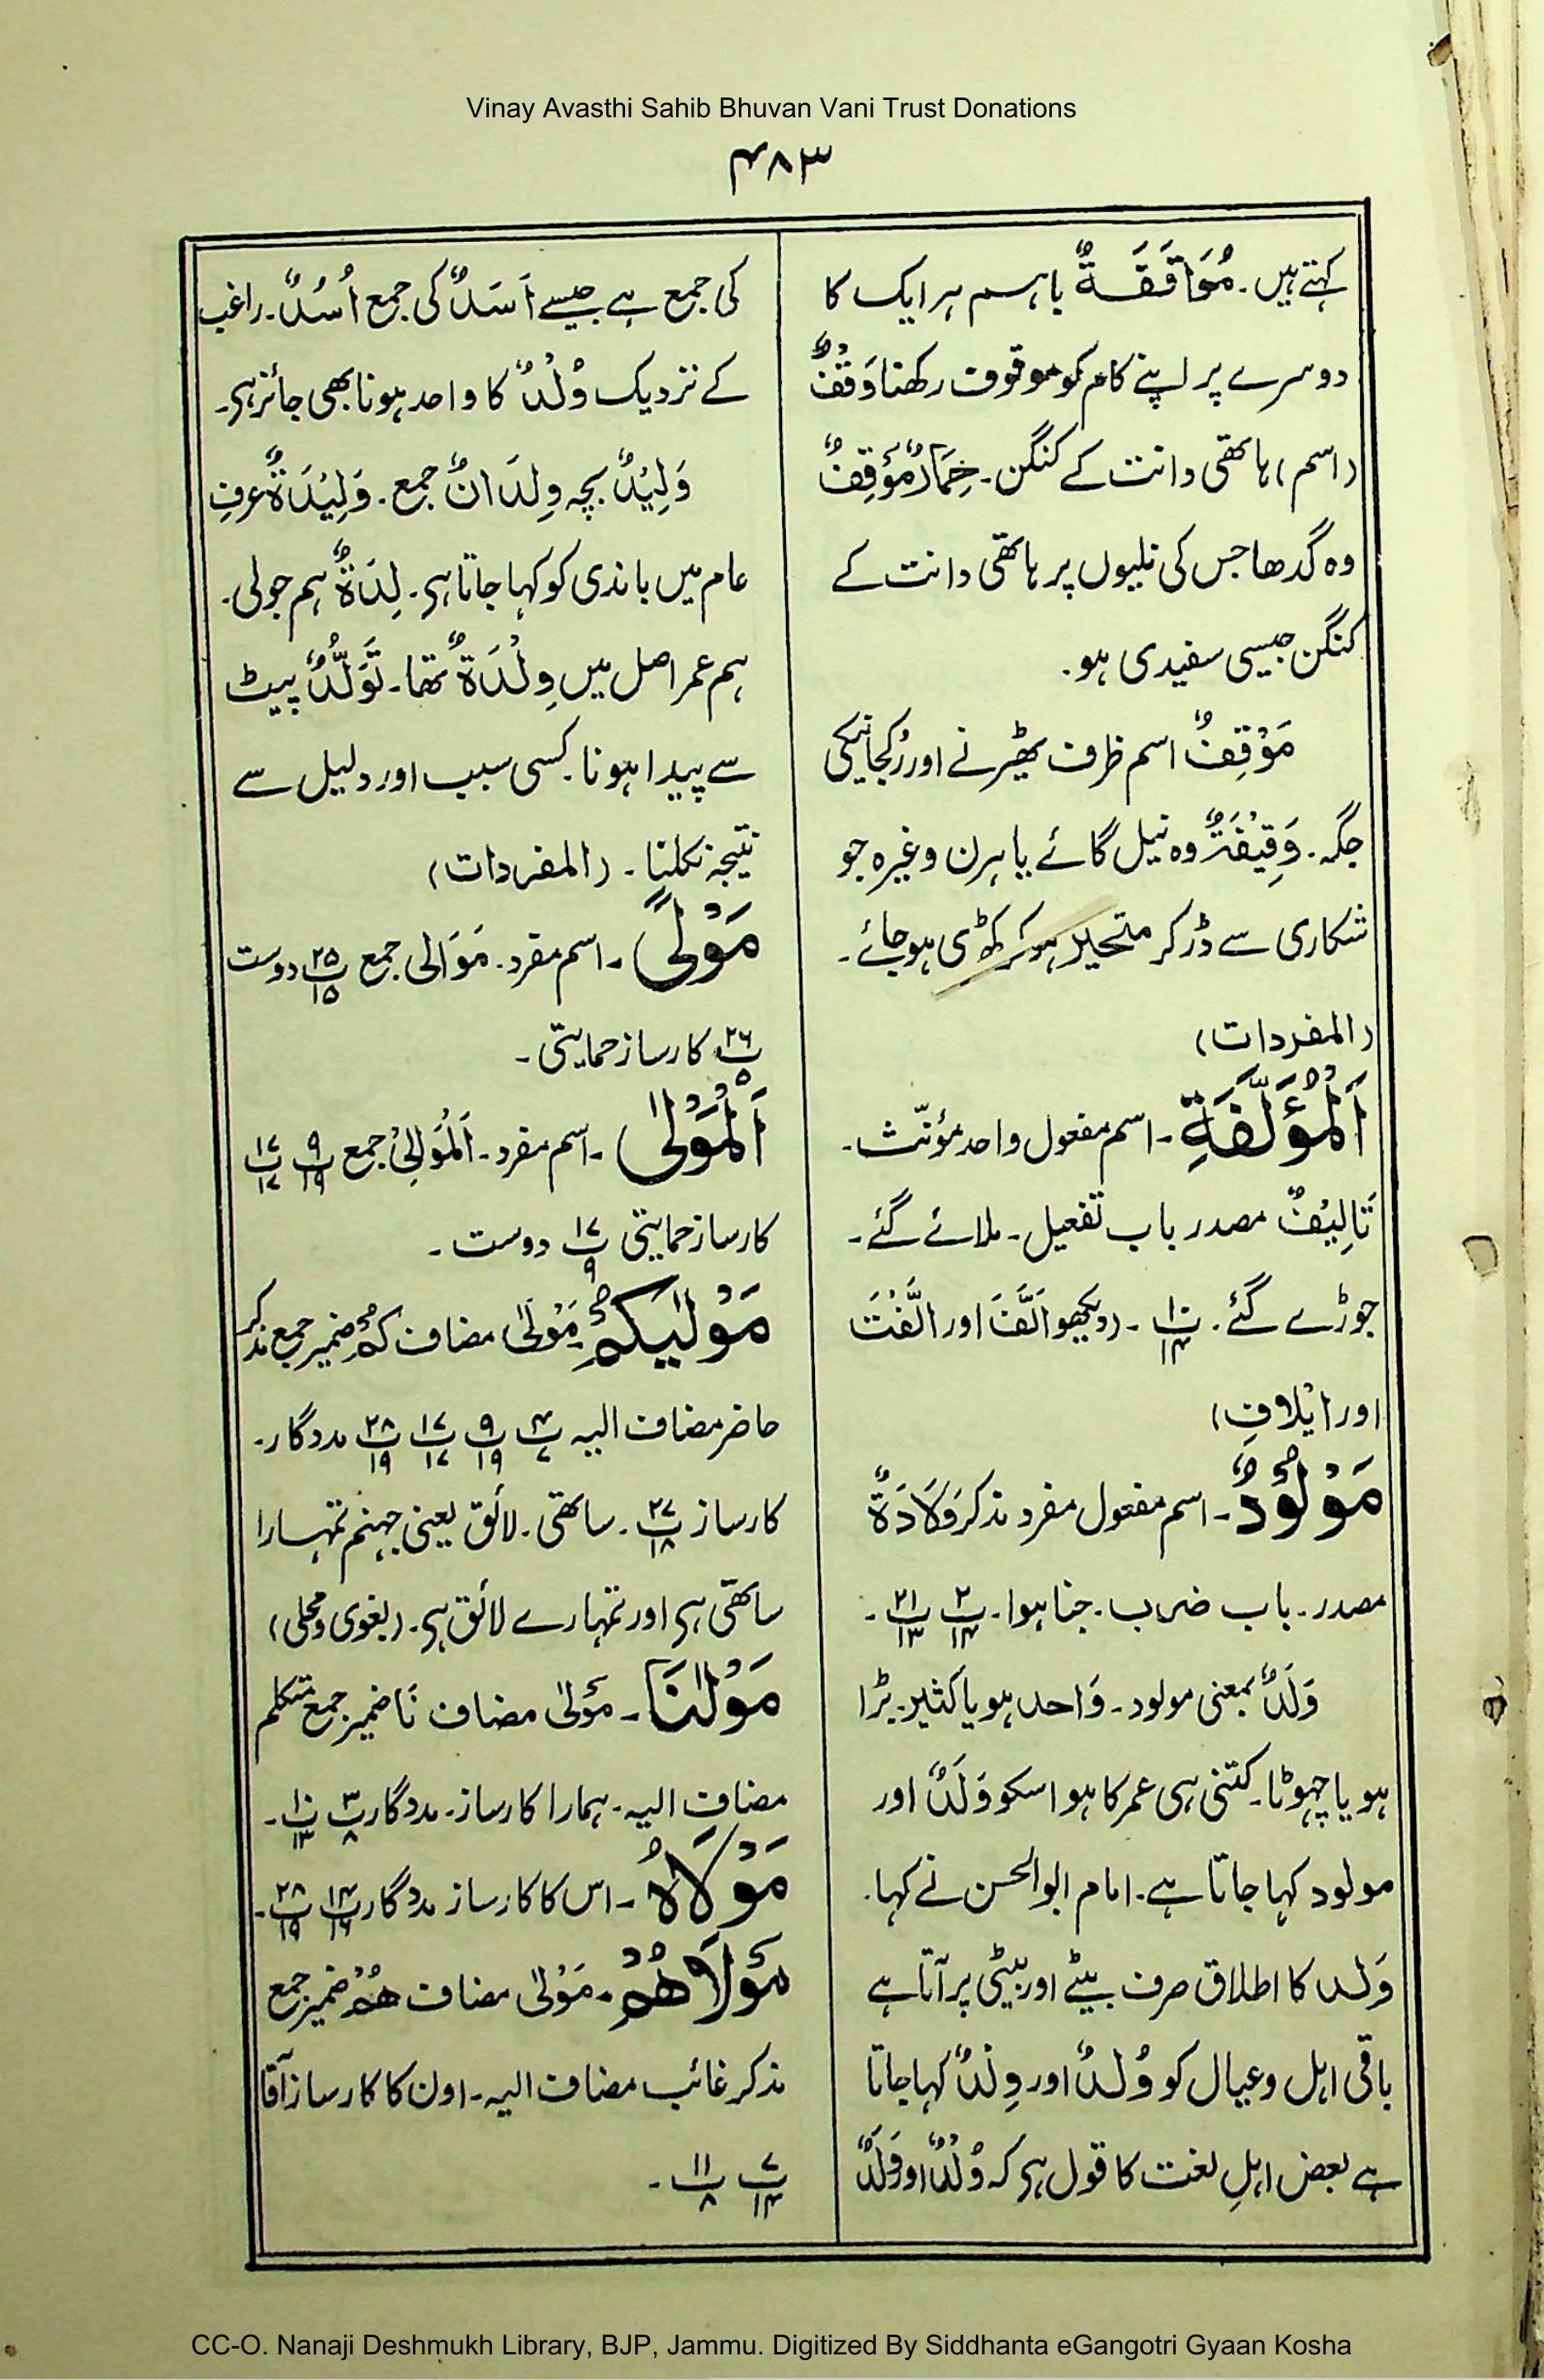 Vinay Avasthi Sahib Bhuvan Vani Trust Donations
۴۸۳
کہتے ہیں۔ مُوَاقَفَةٌ باہم ہر ایک کا
دوسرے پر اپنے کام کو موقوف رکھنا وَقْفٌ
(اسم) ہاتھی دانت کے کنگن۔ حِمَارٌ مُؤَقِفٌ
وہ گدھا جس کی نلیوں پر ہاتھی دانت کے
کنگن جیسی سفیدی ہو۔
مَوْقِفٌ اسم ظرف ٹھیرنے اور رُکجانیکی
جگہ۔ وَقِيْفَةٌ وہ نیل گائے یا ہرن وغیرہ جو
شکاری سے ڈر کر متحیر ہو کر کھڑی ہو جائے۔
(المفردات)
اَلْمُؤَلَّفَةِ۔ اسم مفعول واحد مؤنّث۔
تَالِيْفٌ مصدر باب تفعیل۔ ملائے گئے۔
جوڑے گئے۔ پ۱۰/۱۴۔ (دیکھو اَلَّفَ اور الَّفْتَ
اور ایْلافِ)
مَوْلُوْدٌ۔ اسم مفعول مفرد مذکر وَلَادَةٌ
مصدر۔ باب ضرب۔ جنا ہوا۔ پ۲/۱۴ پ۲۱/۱۳۔
وَلَدٌ بمعنی مولود۔ وَاحد ہو یا کثیر۔ بڑا
ہو یا چھوٹا۔ کتنی ہی عمر کا ہو اسکو وَلَدٌ اور
مولود کہا جاتا ہے۔ امام ابوالحسن نے کہا۔
وَلد کا اطلاق صرف بیٹے اور بیٹی پر آتا ہے
باقی اہل و عیال کو وُلدٌ اور وِلدٌ کہا جاتا
ہے بعض اہلِ لغت کا قول ہی کہ وُلْدٌ اور وَلَدٌ
کی جمع ہے جیسے اَسَدٌ کی جمع اُسُدٌ۔ راغب
کے نزدیک وُلْدٌ کا واحد ہونا بھی جائز ہی۔
وَلِيْدٌ بچہ وِلدَانٌ جمع۔ وَلِيْدَةٌ عرفِ
عام میں باندی کو کہا جاتا ہی۔ لِدَةٌ ہم جولی۔
ہم عمر اصل میں وِلْدَةٌ تھا۔ تَوَلُّدٌ پیٹ
سے پیدا ہونا۔ کسی سبب اور دلیل سے
نتیجہ نکلنا۔ (المفردات)
مَوْلًى۔ اسم مفرد۔ مَوَالی جمع پ۲۵/۱۵ دوست
پ۲۶/۵ کارساز حمایتی۔
اَلْمَوْلٰى۔ اسم مفرد۔ اَلْمَوَالِیْ جمع پ۹/۱۹ پ۱۷/۱۷
کارساز حمایتی پ۱۷/۹ دوست۔
مَوْلٰىكُمْ۔ مَوْلٰى مضاف كُمْ ضمیر جمع مذکر
حاضر مضاف الیہ پ۴/۷ پ۹/۱۹ پ۱۷/۱۷ پ۲۸/۱۹ مددگار۔
کارساز پ۲۷/۱۸۔ ساتھی۔ لائق یعنی جہنم تمہارا
ساتھی ہی اور تمہارے لائق ہی۔ (بغوی و محلی)
مَوْلٰنَا۔ مَوْلٰى مضاف نَا ضمیر جمع متکلم
مضاف الیہ۔ ہمارا کارساز۔ مددگار پ۳/۸ پ۱۰/۱۳۔
مَوْلَاهُ۔ اس کا کارساز مددگار پ۱۴/۱۶ پ۲۸/۱۹۔
مَوْلَاهُمْ۔ مَوْلٰى مضاف هُمْ ضمیر جمع
مذکر غائب مضاف الیہ۔ اون کا کارساز آقا
پ۷/۱۴ پ۱۱/۸۔
CC-O. Nanaji Deshmukh Library, BJP, Jammu. Digitized By Siddhanta eGangotri Gyaan Kosha